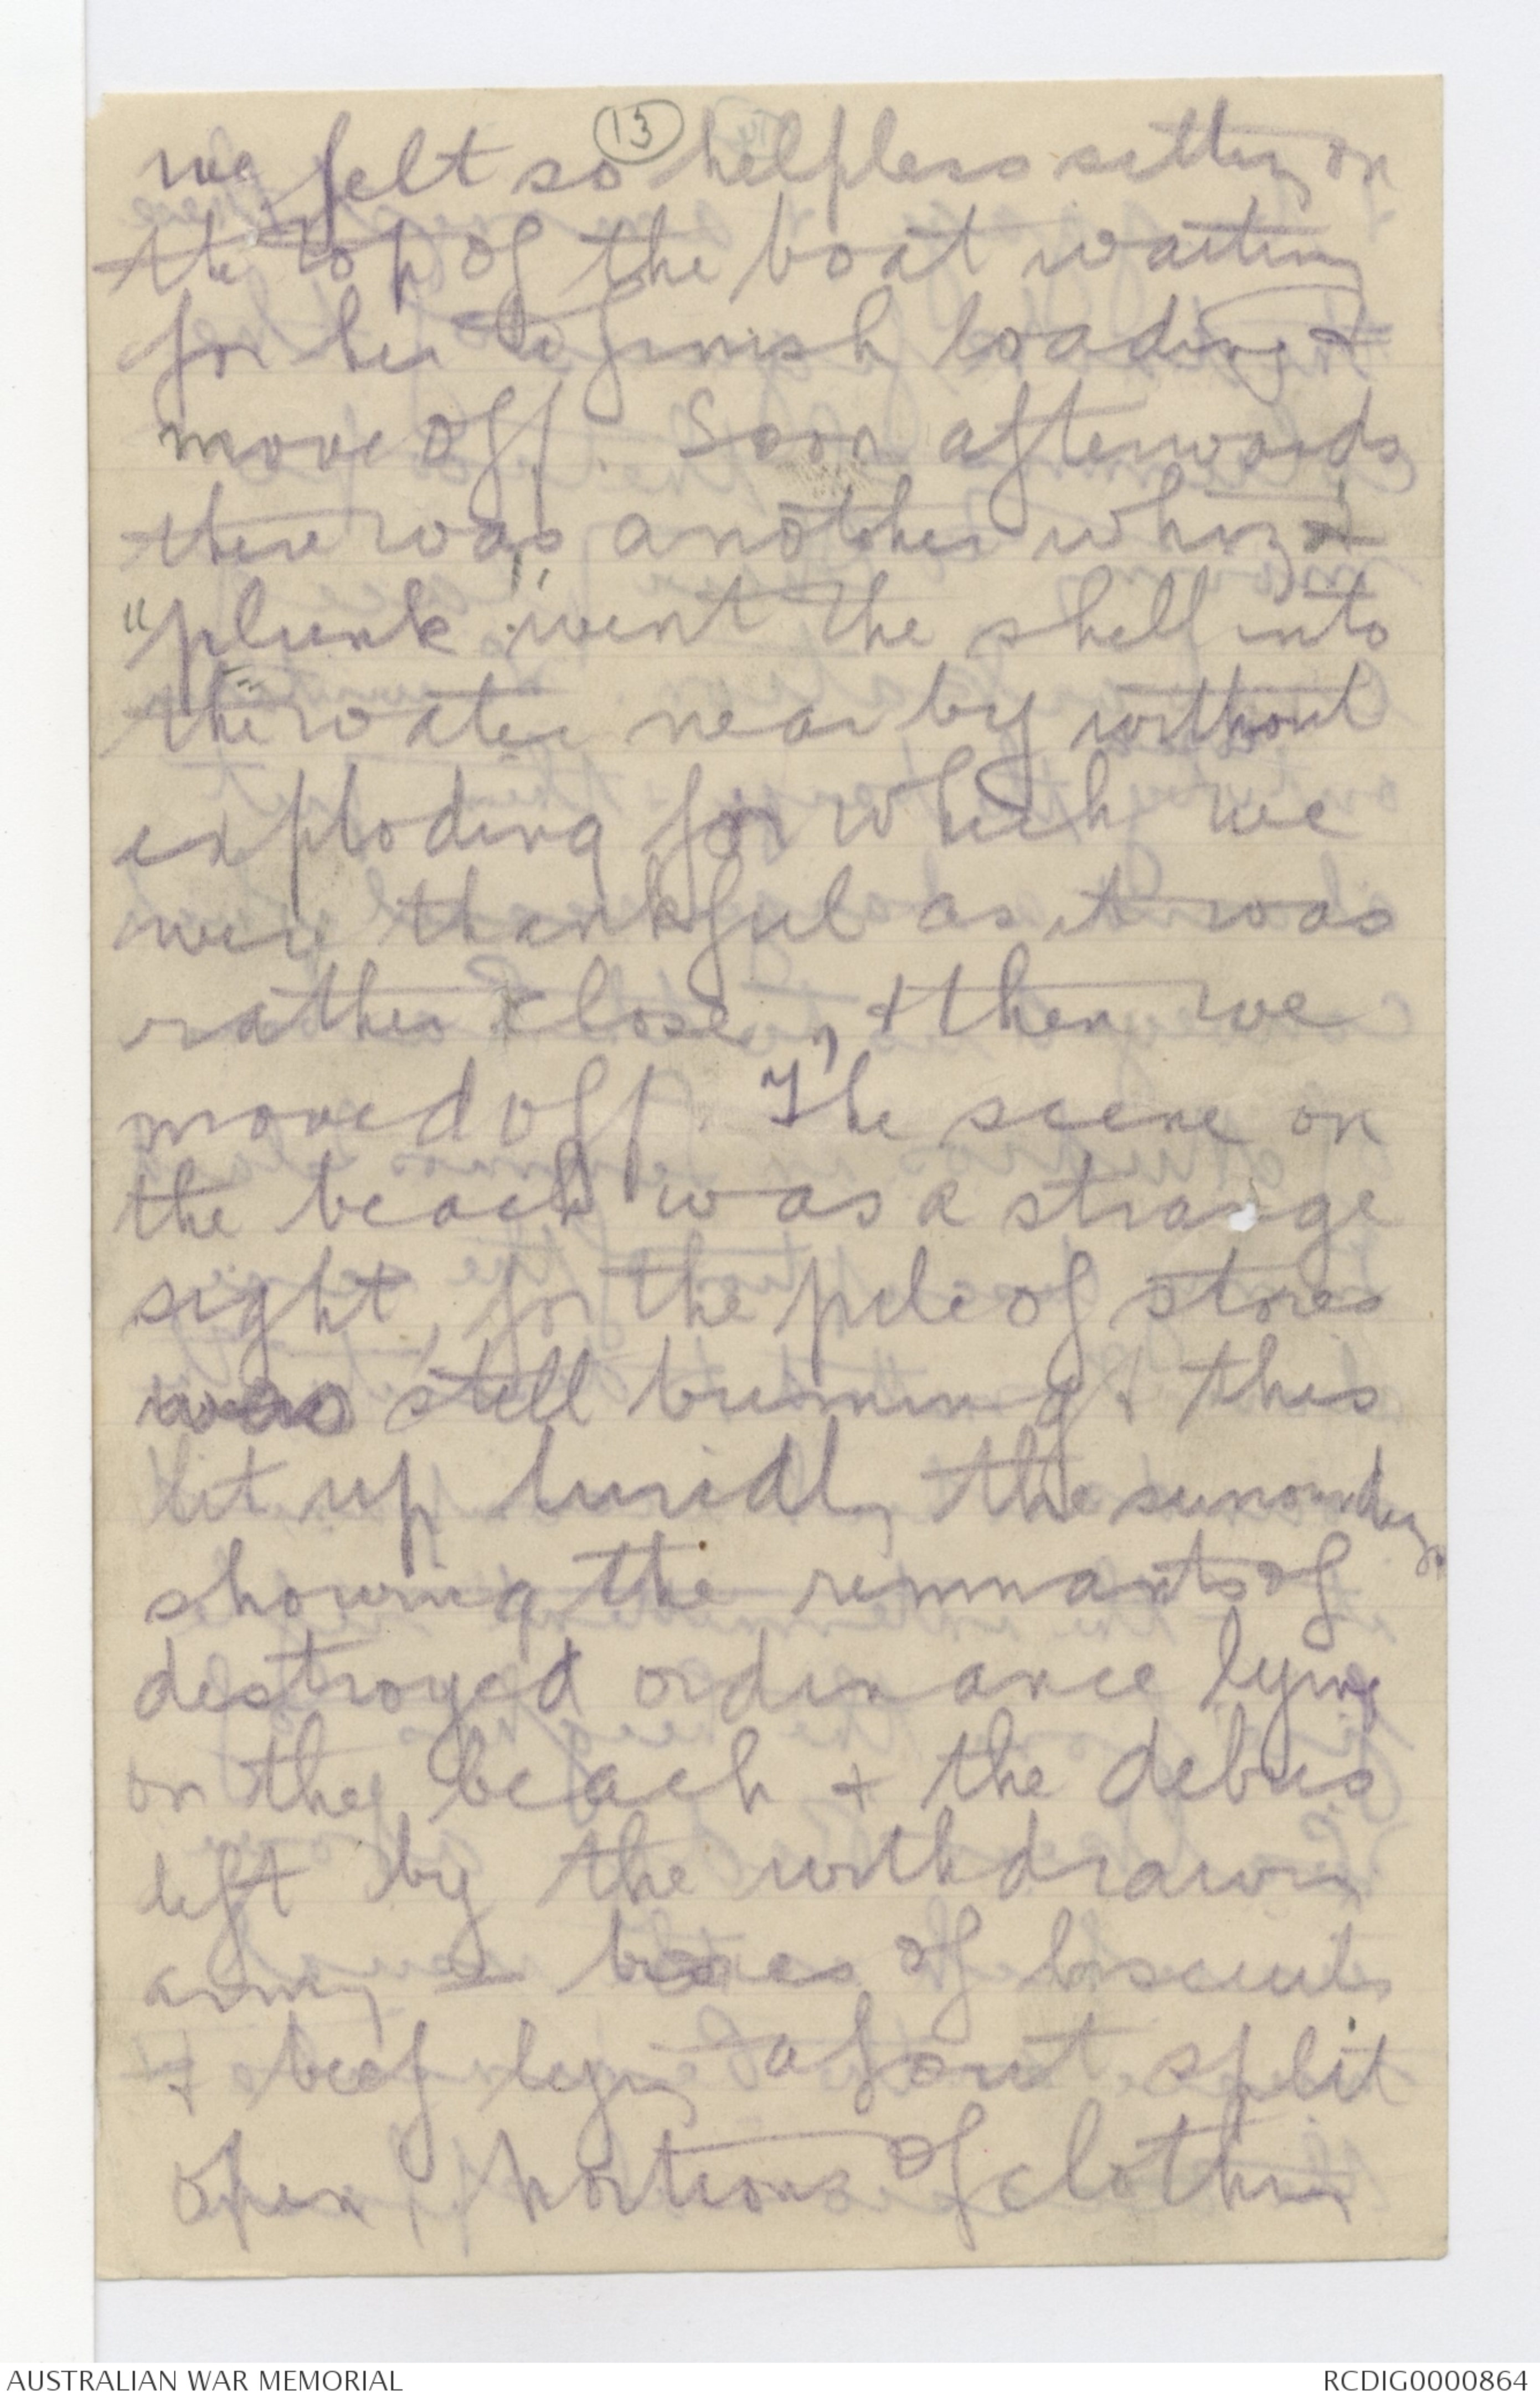 13
we felt so helpless sitting on
the top of the boat waiting
for her to finish loading &
move off. Soon afterwards
there was another whizz &
"plunk" went the shell into
the water near by without
exploding for which we
were thankful as it was
rather close, & then we
moved off. The scene on
the beach was a strange
sight, for the pile of stores
was still burning & this
lit up luridly the surroundings
showing the remnants of
destroyed ordinance lying
on the beach & the debris
left by the withdrawing
army - boxes of biscuits
& beef lying about split
open, portions of clothing
AUSTRALIAN WAR MEMORIAL
RCDIG0000864